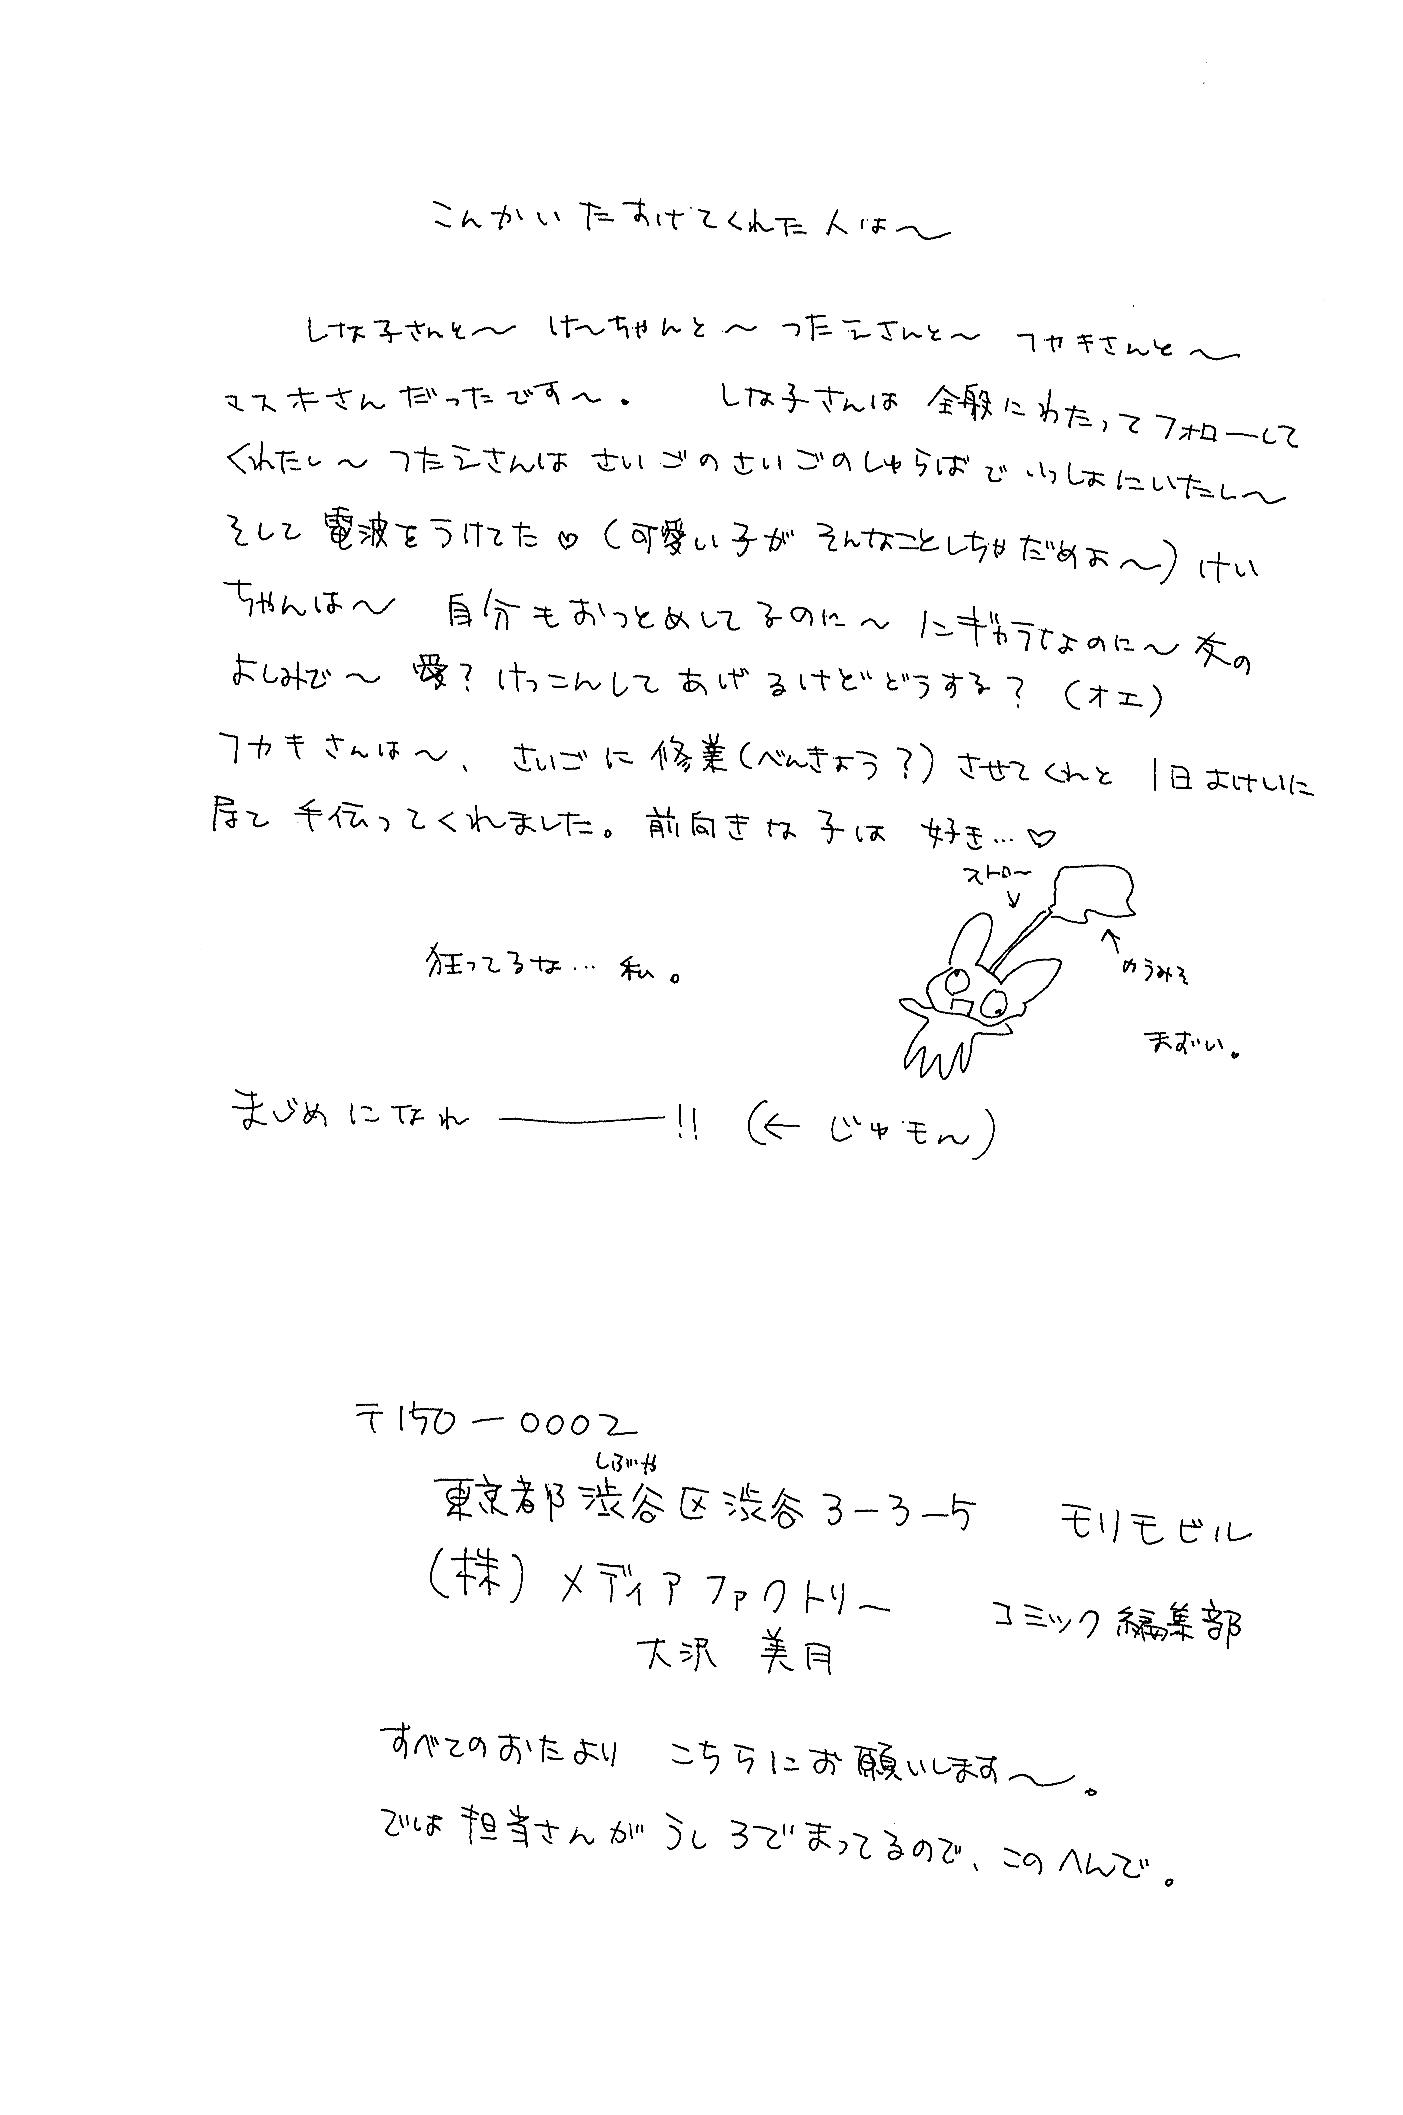 こんかいたすけてくれた人は〜
しな子さんと〜 けーちゃんと〜 つたえさんと〜 フカキさんと〜
マスホさんだったです〜。 しな子さんは全般にわたってフォローして
くれたし〜つたえさんはさいごのさいごのしゅらばでいっしょにいたし〜
そして電波をうけてた♡(可愛い子がそんなことしちゃだめよ〜)けい
ちゃんは〜 自分もおつとめしてるのに〜 ニギカラなのに〜友の
よしみで〜 愛?けっこんしてあげるけどどうする?(オエ)
フカキさんは〜、さいごに修業(べんきょう?)させてくれと1日よけいに
居て手伝ってくれました。前向きな子は好き…♡
ストロー
↓
↑
のうみそ
まずい。
狂ってるな…私。
まじめになれ―――!!(←じゅモん)
〒150-0002
しぶや
東京都渋谷区渋谷3-3-5 モリモビル
(株)メディアファクトリー コミック編集部
大沢 美月
すべてのおたより こちらにお願いします〜。
では担当さんがうしろでまってるので、このへんで。